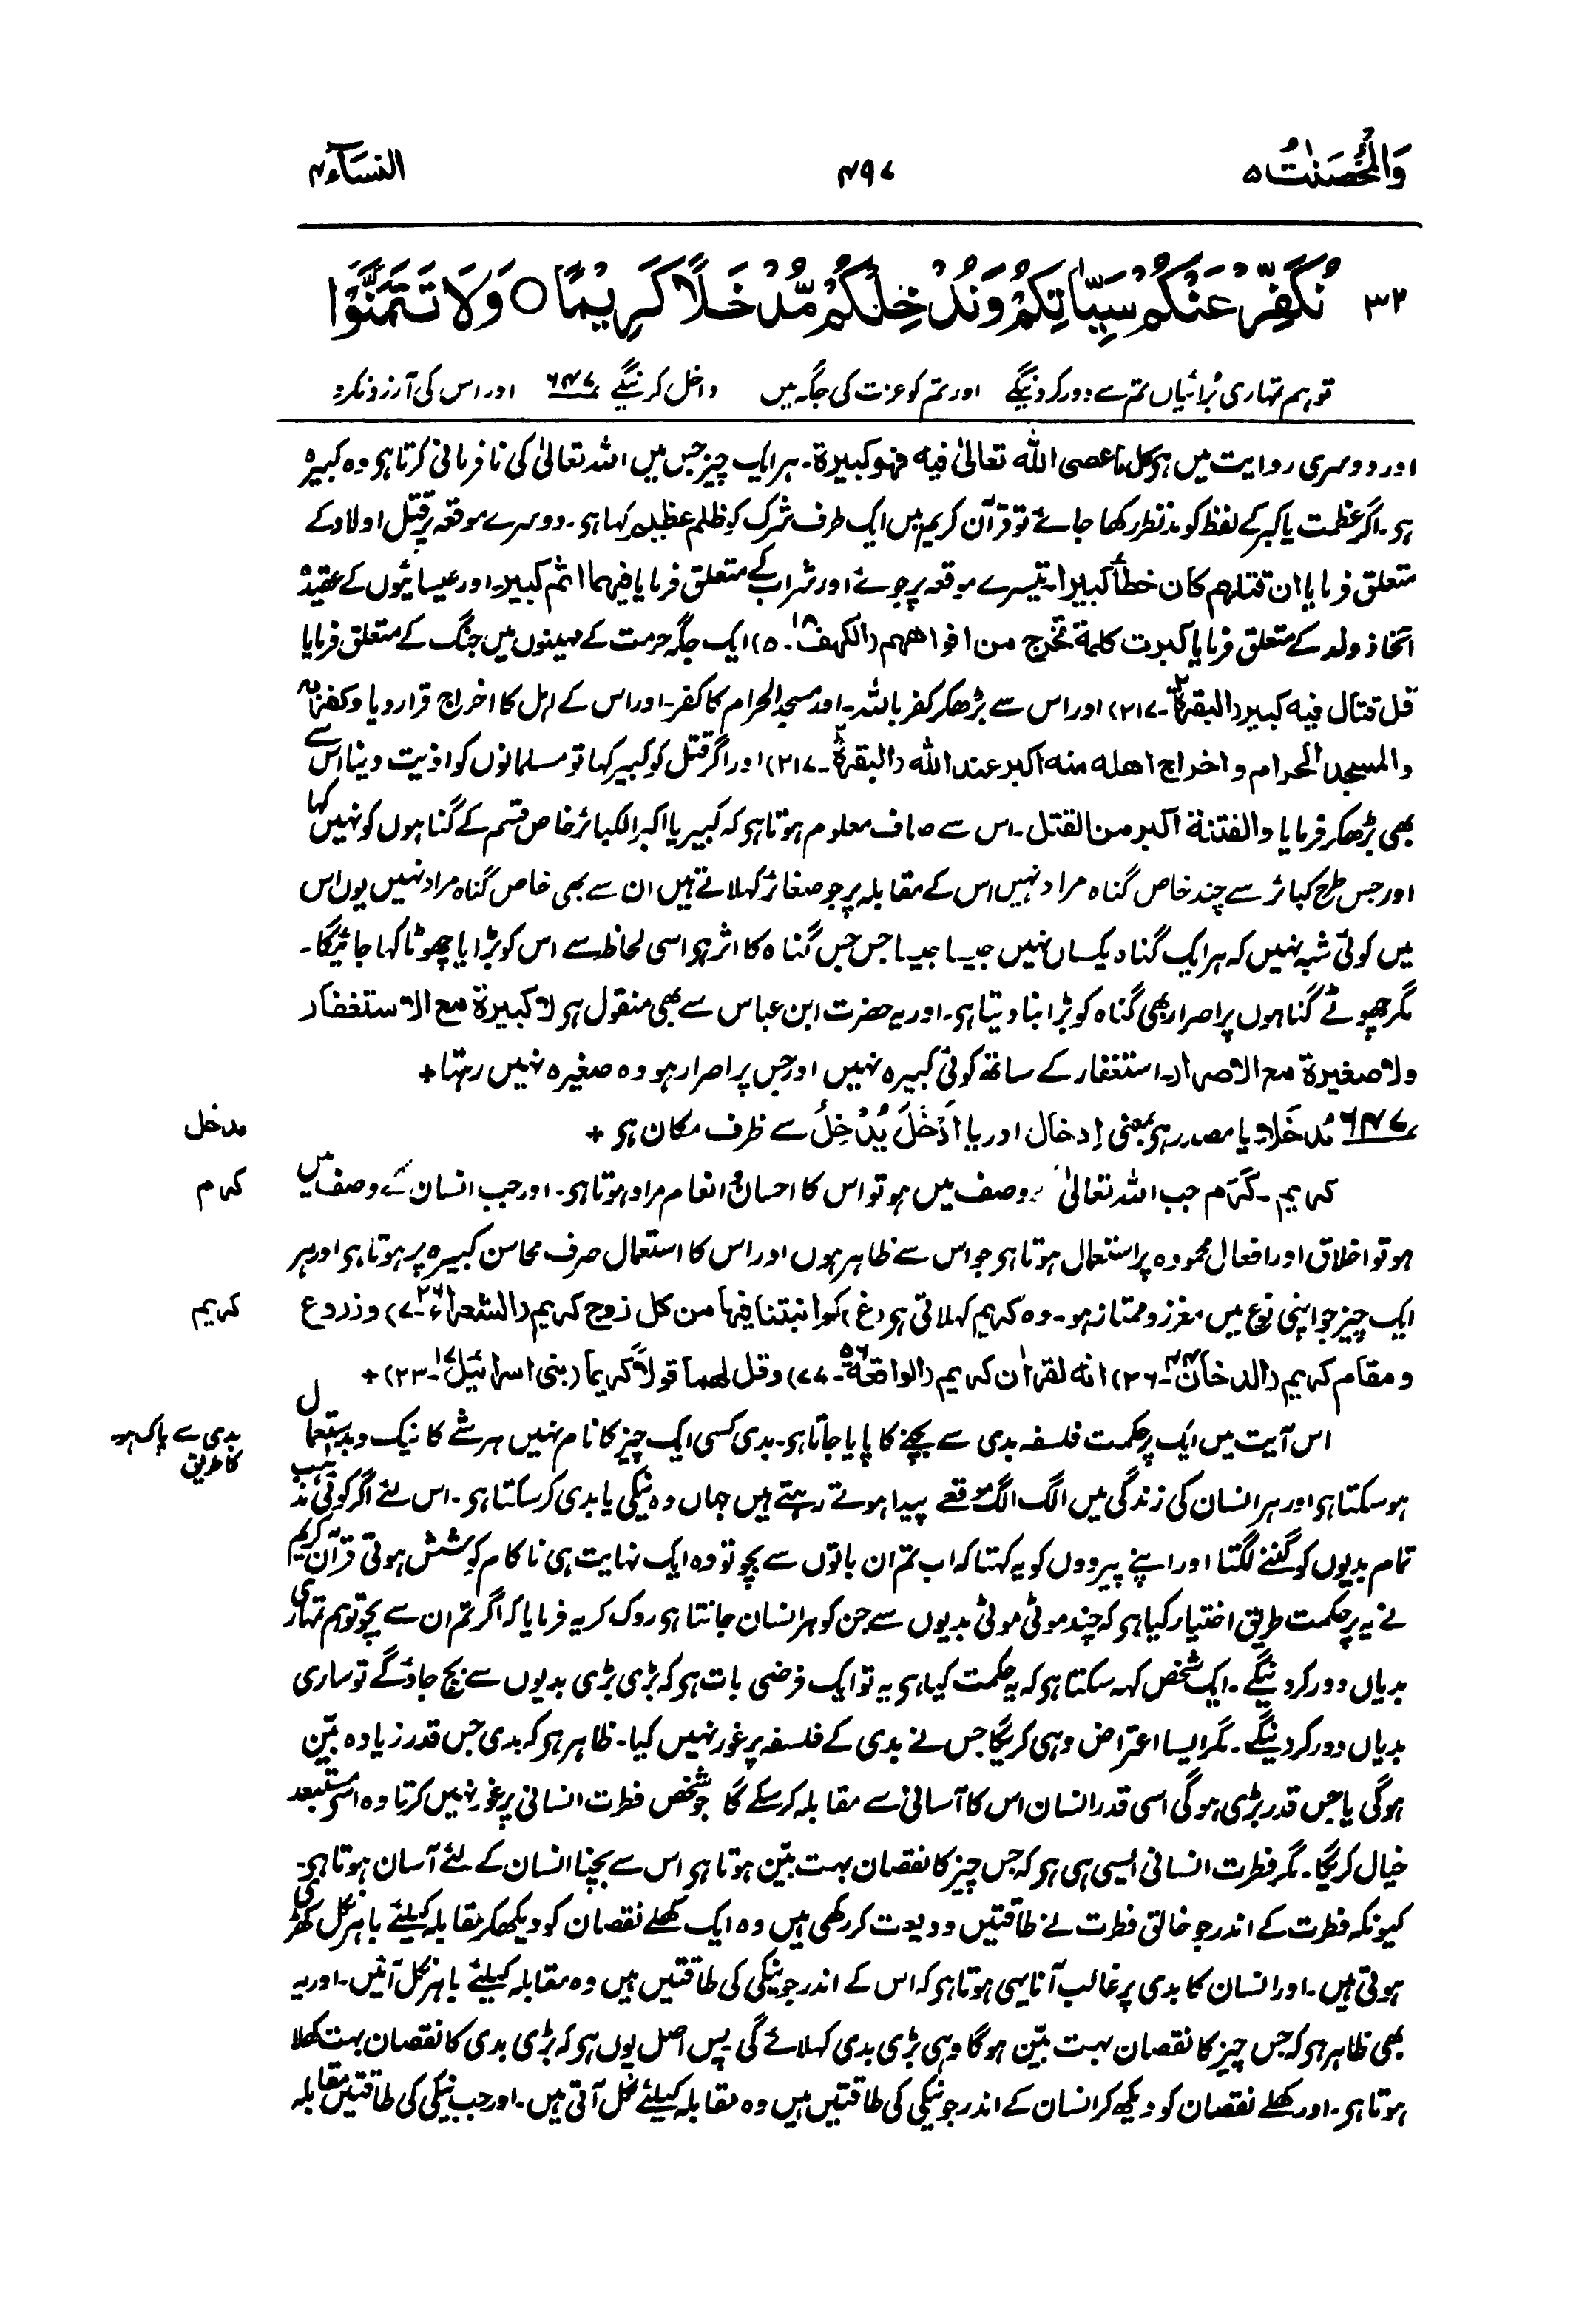 وَالْمُحْصَنٰتُ ۵
۴۹۷
النساۤء ۴
۳۲ نُكَفِّرْ عَنْكُمْ سَيِّاٰتِكُمْ وَنُدْخِلْكُمْ مُّدْخَلًا كَرِيْمًا ○ وَلَا تَتَمَنَّوْا
تو ہم تمہاری بُرائیاں تم سے دور کر دینگے اور تم کو عزت کی جگہ میں داخل کرینگے ۶۴۷ اور اس کی آرزو نکرو
اور دوسری روایت میں ہو کل ما عصی اللہ تعالیٰ فیہ فہو کبیرۃ۔ ہر ایک چیز جس میں اللہ تعالیٰ کی نافرمانی کرتا ہو وہ کبیرہ
ہو۔ اگر عظمت یا کبر کے لفظ کو مدنظر رکھا جائے تو قرآن کریم میں ایک طرف شرک کو ظلم عظیم کہا ہو۔ دوسرے موقعہ پر قتل اولاد کے
متعلق فرمایا ان قتلہم کان خطأً کبیرا۔ تیسرے موقعہ پر جوئے اور شراب کے متعلق فرمایا فیہما اثم کبیر۔ اور عیسائیوں کے عقیدہ
اتخاذ ولد کے متعلق فرمایا کبرت کلمۃ تخرج من افواھہم (الکہف ۱۸۔ ۵) ایک جگہ حرمت کے مہینوں میں جنگ کے متعلق فرمایا
قل قتال فیہ کبیر (البقرۃ ۲۔ ۲۱۷) اور اس سے بڑھکر کفر باللہ۔ اور مسجد الحرام کا کفر۔ اور اس کے اہل کا اخراج قرار دیا وکفر بہ
والمسجد الحرام و اخراج اھلہ منہ اکبر عند اللہ (البقرۃ ۲۔ ۲۱۷) اور اگر قتل کو کبیر کہا تو مسلمانوں کو اذیت دینا اس سے
بھی بڑھکر فرمایا والفتنۃ اکبر من القتل۔ اس سے صاف معلوم ہوتا ہو کہ کبیر یا اکبر الکبائر خاص قسم کے گناہوں کو نہیں کہا
اور جس طرح کبائر سے چند خاص گناہ مراد نہیں اس کے مقابلہ پر جو صغائر کہلاتے ہیں ان سے بھی خاص گناہ مراد نہیں یوں اس
میں کوئی شبہ نہیں کہ ہر ایک گناہ یکساں نہیں جیسا جیسا جس جس گناہ کا اثر ہو اسی لحاظ سے اس کو بڑا یا چھوٹا کہا جائیگا۔
مگر چھوٹے گناہوں پر اصرار بھی گناہ کو بڑا بنا دیتا ہو۔ اور یہ حضرت ابن عباس سے بھی منقول ہو لا کبیرۃ مع الاستغفار
ولا صغیرۃ مع الاصرار۔ استغفار کے ساتھ کوئی کبیرہ نہیں اور جس پر اصرار ہو وہ صغیرہ نہیں رہتا +
۶۴۷ مُدخَلًا۔ یا مصدر ہو بمعنی اِدخال اور یا اَدْخَلَ یُدْخِلُ سے ظرف مکان ہو +
مدخل
کریم۔ کَرَم جب اللہ تعالیٰ کے وصف میں ہو تو اس کا احسان و انعام مراد ہوتا ہو۔ اور جب انسان کے وصف میں
کرم
ہو تو اخلاق اور افعال محمودہ پر استعمال ہوتا ہو جو اس سے ظاہر ہوں اور اس کا استعمال صرف محاسن کبیرہ پر ہوتا ہو اور ہر
ایک چیز جو اپنی نوع میں معزز و ممتاز ہو۔ وہ کریم کہلاتی ہو (غ) کم انبتنا فیہا من کل زوج کریم (الشعراء ۲۶۔ ۷) وزروع
کریم
و مقام کریم (الدخان ۴۴۔ ۲۶) انہ لقراٰن کریم (الواقعۃ ۵۶۔ ۷۷) وقل لھما قولاً کریماً (بنی اسرائیل ۱۷۔ ۲۳) +
اس آیت میں ایک پر حکمت فلسفہ بدی سے بچنے کا پایا جاتا ہو۔ بدی کسی ایک چیز کا نام نہیں ہر شے کا نیک و بد استعمال
بدی سے پاک ہونے
کا طریق
ہو سکتا ہو اور ہر انسان کی زندگی میں الگ الگ موقعے پیدا ہوتے رہتے ہیں جہاں وہ نیکی یا بدی کر سکتا ہو۔ اس لئے اگر کوئی مذہب
تمام بدیوں کو گننے لگتا اور اپنے پیرووں کو یہ کہتا کہ اب تم ان باتوں سے بچو تو وہ ایک نہایت ہی ناکام کوشش ہوتی قرآن کریم
نے یہ پر حکمت طریق اختیار کیا ہو کہ چند موٹی موٹی بدیوں سے جن کو ہر انسان جانتا ہو روک کر یہ فرمایا کہ اگر تم ان سے بچو تو ہم تمہاری
بدیاں دور کر دینگے۔ ایک شخص کہہ سکتا ہو کہ یہ حکمت کیا ہو یہ تو ایک فرضی بات ہو کہ بڑی بڑی بدیوں سے بچ جاؤ گے تو ساری
بدیاں دور کر دینگے۔ مگر ایسا اعتراض وہی کریگا جس نے بدی کے فلسفہ پر غور نہیں کیا۔ ظاہر ہو کہ بدی جس قدر زیادہ بیّن
ہوگی یا جس قدر بڑی ہوگی اسی قدر انسان اس کا آسانی سے مقابلہ کر سکے گا جو شخص فطرت انسانی پر غور نہیں کرتا وہ اسے مستبعد
خیال کریگا۔ مگر فطرت انسانی ایسی ہی ہو کہ جس چیز کا نقصان بہت بیّن ہوتا ہو اس سے بچنا انسان کے لئے آسان ہوتا ہو۔
کیونکہ فطرت کے اندر جو خالق فطرت نے طاقتیں ودیعت کر رکھی ہیں وہ ایک کھلے نقصان کو دیکھکر مقابلہ کیلئے باہر نکل کھڑی
ہوتی ہیں۔ اور انسان کا بدی پر غالب آنا یہی ہوتا ہو کہ اس کے اندر جو نیکی کی طاقتیں ہیں وہ مقابلہ کیلئے باہر نکل آئیں۔ اور یہ
بھی ظاہر ہو کہ جس چیز کا نقصان بہت بیّن ہوگا وہی بڑی بدی کہلائے گی پس اصل یوں ہو کہ بڑی بدی کا نقصان بہت کھلا
ہوتا ہو۔ اور کھلے نقصان کو دیکھ کر انسان کے اندر جو نیکی کی طاقتیں ہیں وہ مقابلہ کیلئے نکل آتی ہیں۔ اور جب نیکی کی طاقتیں مقابلہ